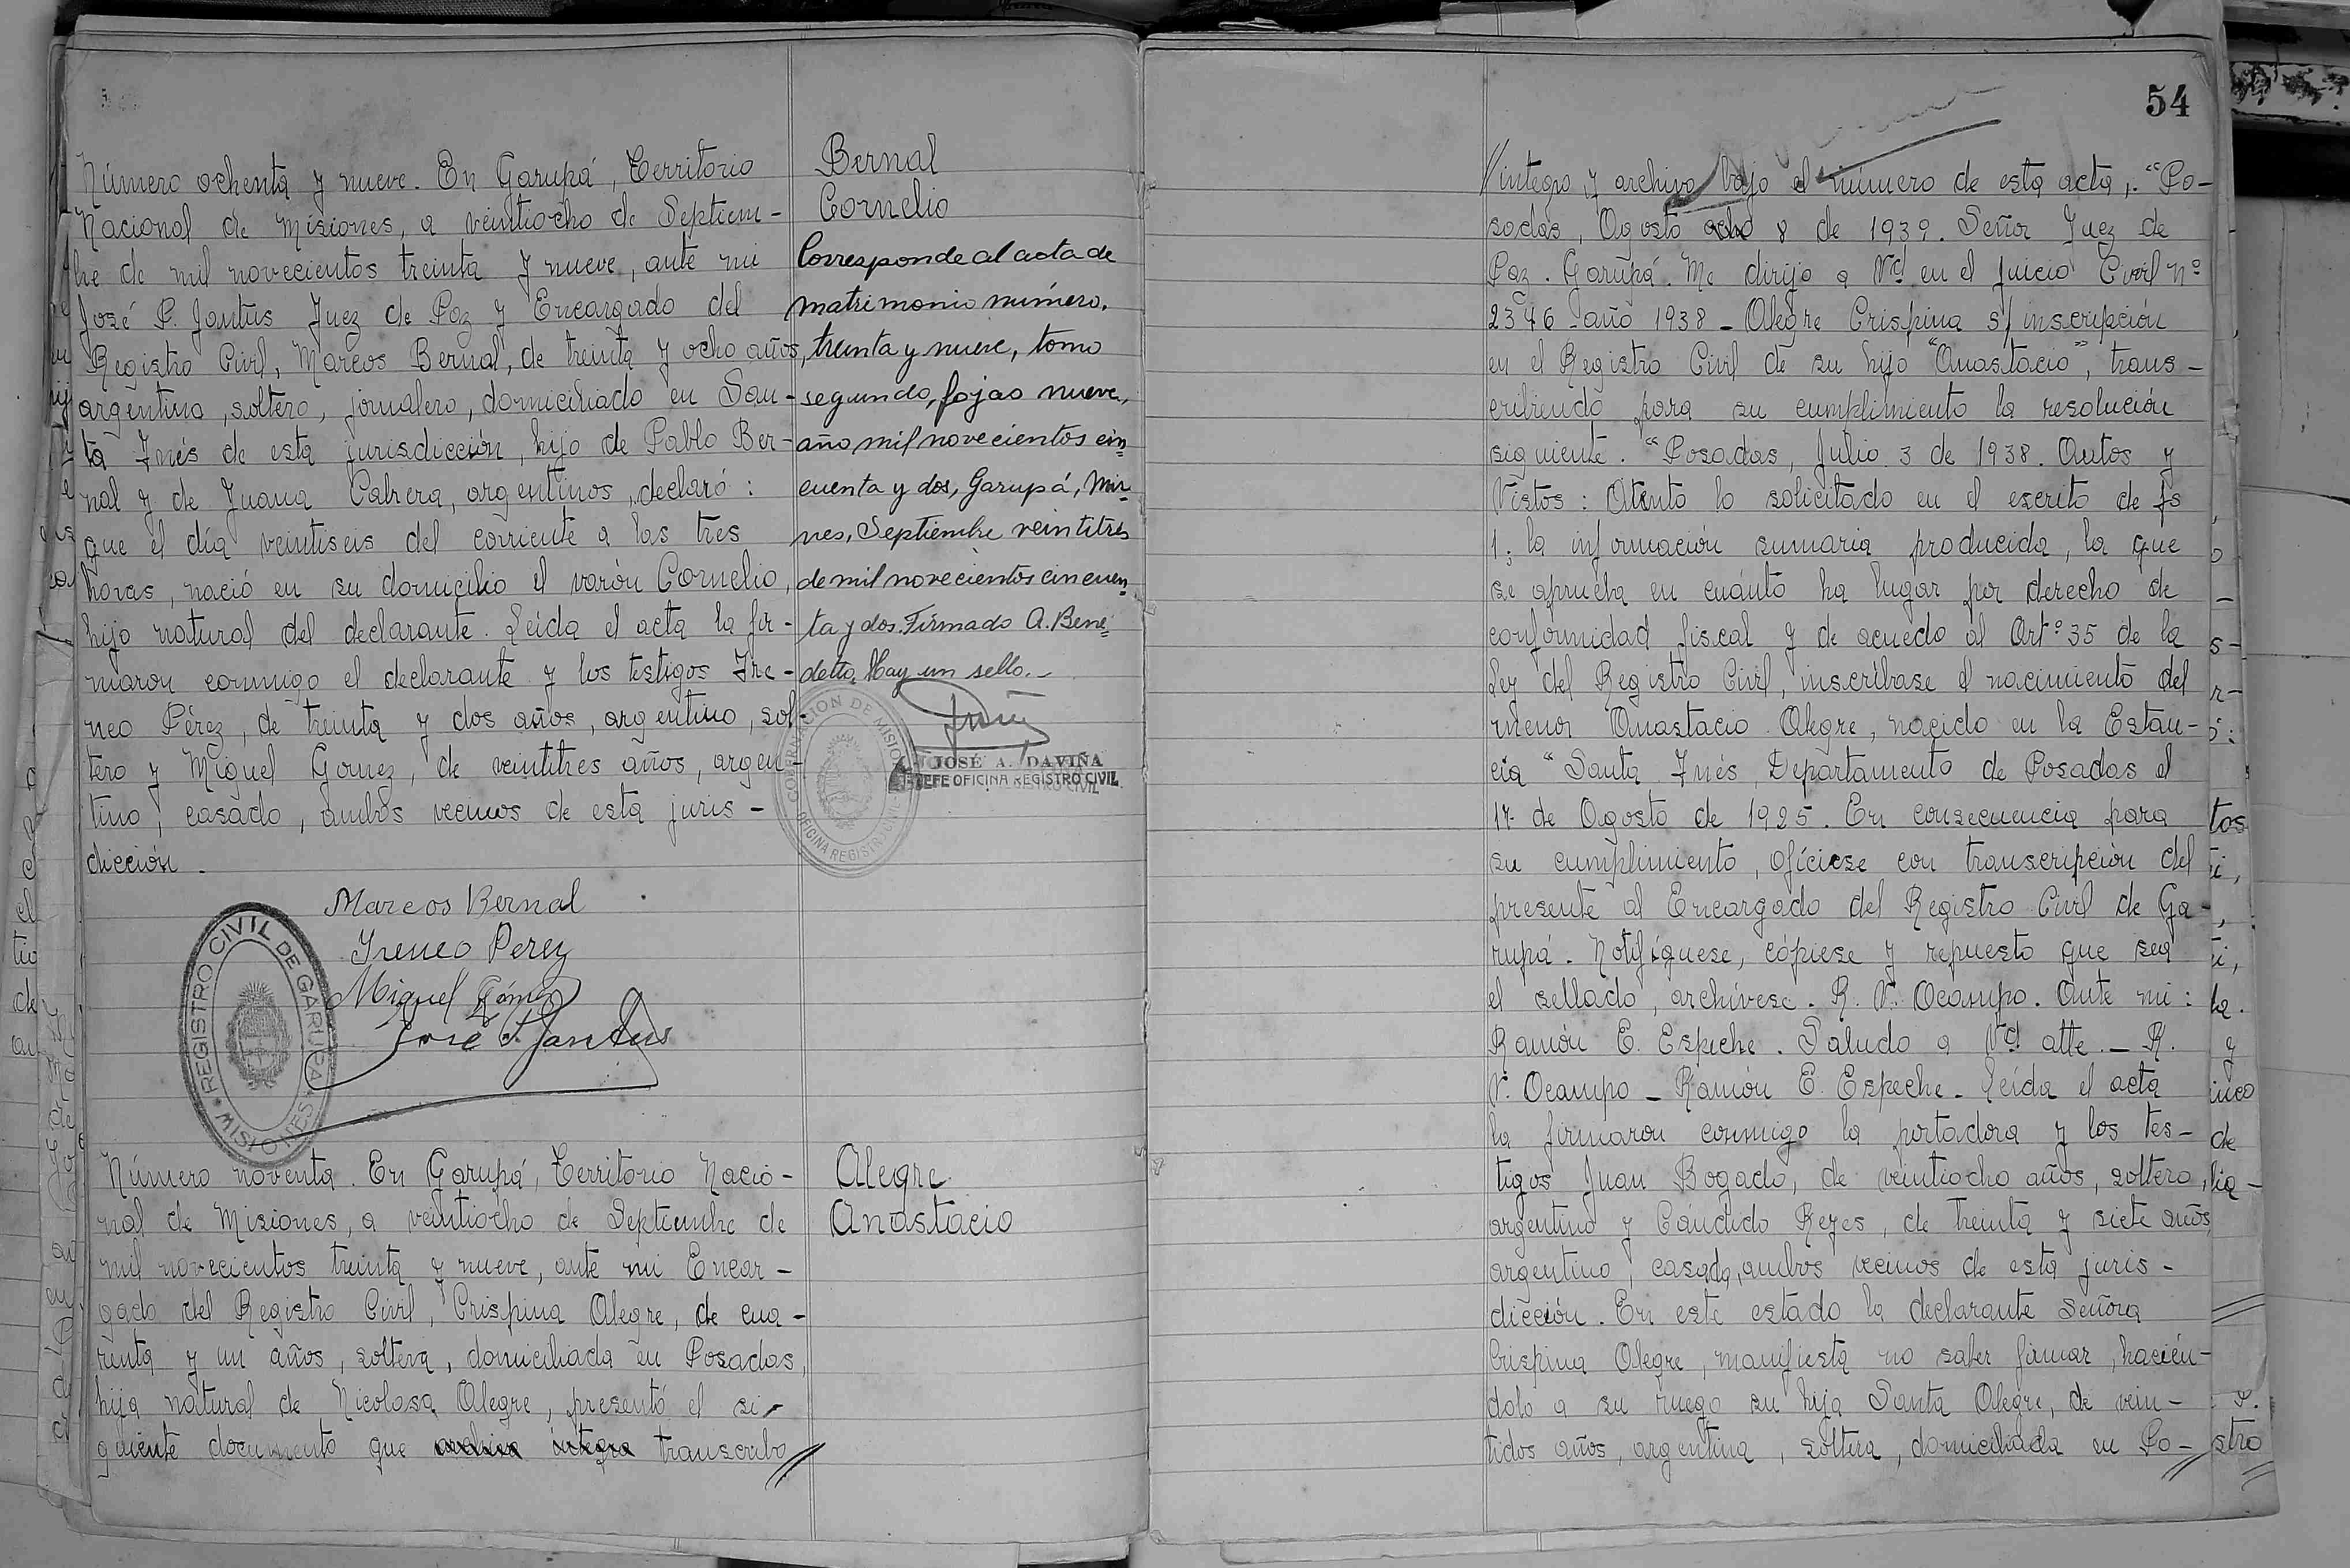 Número ochenta y nueve. En Garupá, Territorio
Nacional de Misiones, a veintiocho de Septiem-
bre de mil novecientos treinta y nueve, ante mi
José P. Jantus Juez de Paz y Encargado del
Registro Civil, Marcos Bernal, de treinta y ocho años,
argentino, soltero, jornalero, domiciliado en San-
ta Inés de esta jurisdicción, hijo de Pablo Ber-
nal y de Juana Cabrera, argentinos, declaró:
que el día veintiseis del corriente a las tres
horas, nació en su domicilio el varón Cornelio,
hijo natural del declarante. Leída el acta la fir-
maron conmigo el declarante y los testigos Ire-
neo Pérez, de treinta y dos años, argentino, sol-
tero y Miguel Gomez, de veintitres años, argen-
tino, casado, ambos vecinos de esta juris-
dicción.
Marcos Bernal
Ireneo Perez
Miguel Gómez
José P. Jantus
REGISTRO CIVIL DE GARUPA
MISIONES
Bernal
Cornelio
Corresponde al acta de
matrimonio número,
treinta y nueve, tomo
segundo, fojas nueve,
año mil novecientos cin
cuenta y dos, Garupá, Mis
nes, Septiembre veintitrés
de mil novecientos cincuen
ta y dos. Firmado A. Bene
detto. Hay un sello.-
GOBERNACION DE MISIONES
OFICINA REGISTRO CIVIL
JOSÉ A. DAVIÑA
JEFE OFICINA REGISTRO CIVIL
Número noventa. En Garupá, Territorio Nacio-
nal de Misiones, a veintiocho de Septiembre de
mil novecientos treinta y nueve, ante mi Encar-
gado del Registro Civil, Crispina Alegre, de cua-
renta y un años, soltera, domiciliada en Posadas,
hija natural de Nicolasa Alegre, presentó el si-
guiente documento que archivo integra transcribo //
Alegre
Anastacio
54
// integro y archivo bajo el número de esta acta,. "Po-
sadas, Agosto ocho 8 de 1939. Señor Juez de
Paz. Garupá. Me dirijo a Vd en el Juicio Civil Nº
2346 - año 1938 - Alegre Crispina s/ inscripción
en el Registro Civil de su hijo "Anastacio", trans-
cribiendo para su cumplimiento la resolución
siguiente. "Posadas, Julio 3 de 1938. Autos y
Vistos: Atento lo solicitado en el escrito de fs
1; la información sumaria producida, la que
se aprueba en cuánto ha lugar por derecho de
conformidad fiscal y de acuedo al Artº 35 de la
Ley del Registro Civil, inscríbase el nacimiento del
menor Anastacio Alegre, nacido en la Estan-
cia "Santa Inés, Departamento de Posadas el
17 de Agosto de 1925. En consecuencia para
su cumplimiento, ofíciese con transcripción del
presente al Encargado del Registro Civil de Ga-
rupá. Notifíquese, cópiese y repuesto que sea
el sellado, archívese. R. V. Ocampo. Ante mi:
Ramón E. Espeche. Saludo a Vd atte. - R.
V. Ocampo - Ramón E. Espeche - Leída el acta
la firmaron conmigo la portadora y los tes-
tigos Juan Bogado, de veintiocho años, soltero,
argentino y Cándido Reyes, de treinta y siete años
argentino, casado, ambos vecinos de esta juris-
dicción. En este estado la declarante Señora
Crispina Alegre, manifiesta no saber firmar, hacién-
dolo a su ruego su hija Santa Alegre, de vein-
tidos años, argentina, soltera, domiciliada en Po- //